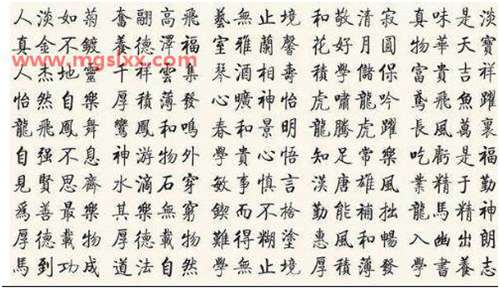 人淡如菊 奮翮高飛 藝無止境 和敬清寂 真味是淡
真金不鍍 養德澤福 室雅蘭馨 花好月圓 物華天寶
www.mgslxx.com
人杰地靈 千祥雲集 琴酒相壽 學儲保 富貴吉祥
怡然自樂 厚積薄發 心曠神怡 虎嘯龍吟 鳶飛魚躍
龍飛鳳舞 鸞鳳和鳴 春和景明 龍騰虎躍 長風萬裏
自强不息 神游物外 學貴心悟 知足常樂 吃虧是福
見賢思齊 水滴石穿 敏事慎言 漢唐雄風 業精于勤
為善最樂 其樂無窮 鍥而不捨 勤能補拙 龍馬精神
厚德載物 厚德載物 難得糊塗 惠風和暢 入幽出朗
馬到功成 道法自然 學無止境 厚積薄發 學書養志